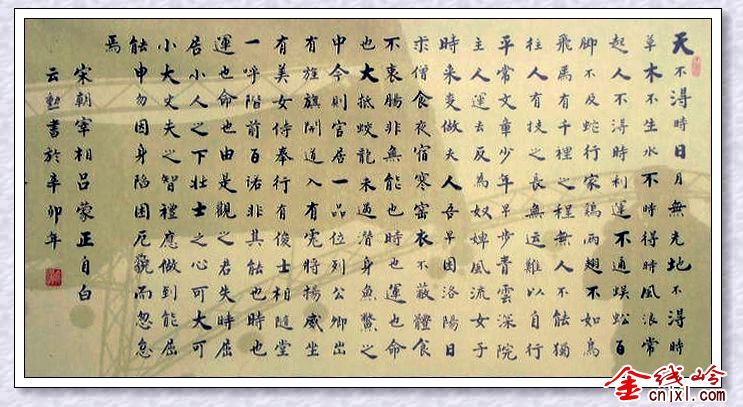 天不得時日月無光地不得時
草木不生水不時得時風浪常
起人不得時利運不通蜈蚣百
脚不及蛇行家鷄両翅不如鳥
飛馬有千裡之程無人不能獨
往人有技之長無运難以自行
平常文章少年早步青雲深院
主人運去反為奴婢風流女子
時来变做夫人吾早困洛陽日
求僧食夜宿寒窑衣不蔽體食
不裹腸非無能也時也運也命
也大抵蛟龍未遇潛身魚鱉之
中今則官居一品位列公卿出
有旌旗鬧道入有將揚威坐
有美女侍奉行有俊士相隨堂
一呼階前百诺非其能也時也
運也命也由是觀之君失時屈
居小人之下壯士之心可大可
小大丈夫之智禮應做到能屈
能申勿因身陷困厄藐而忽忽
焉
宋朝宰相吕蒙正自白
云書於辛卯年
金线岭
cnjxl.com